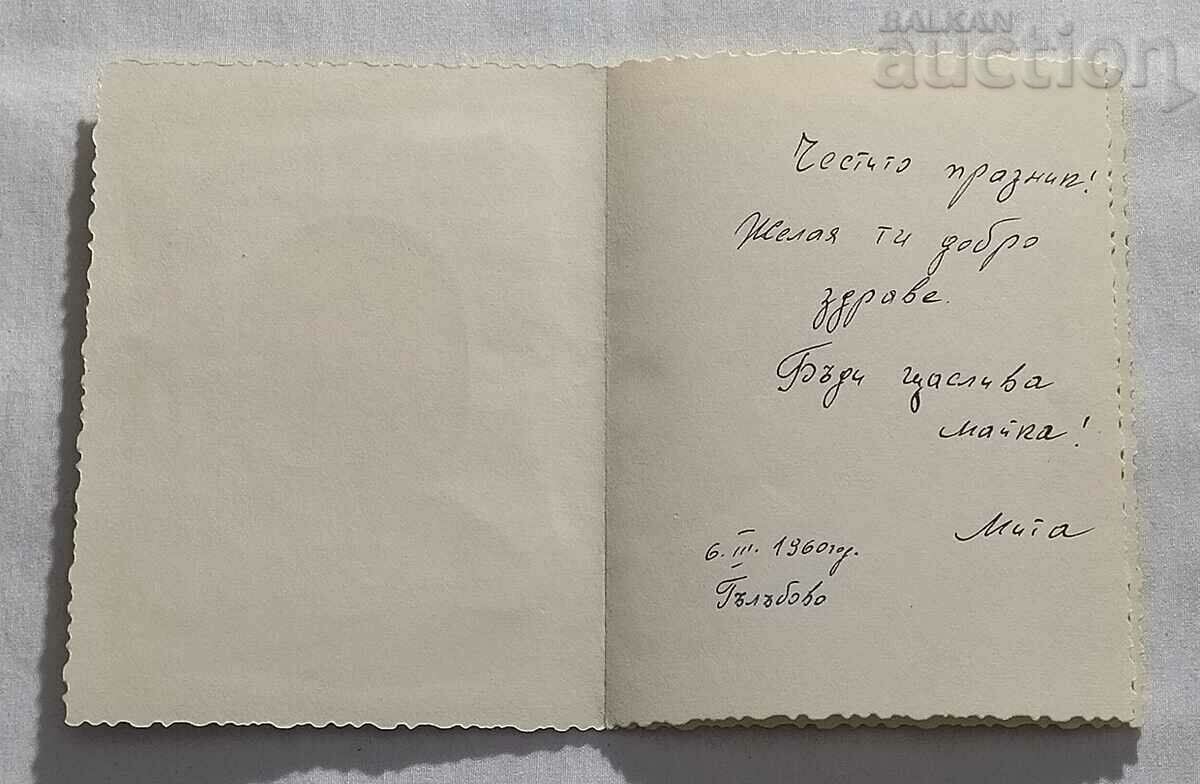 BALKAN
auction
Честито празник!
Желая ти добро
здраве.
Бъди щаслива
майка!
Мита
6. III. 1960 год.
Гълъбово